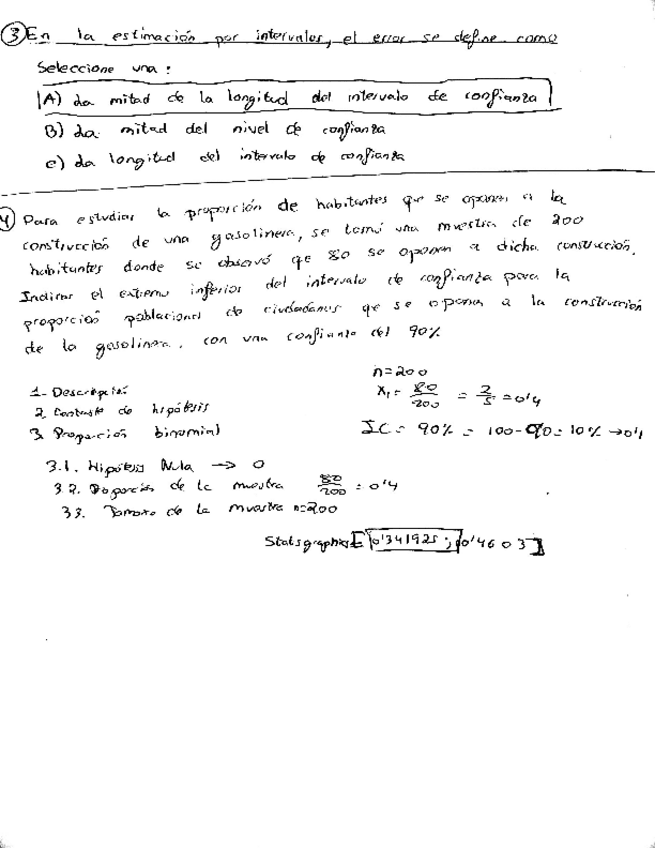 ③ En la estimación por intervalos, el error se define como
Seleccione una:
A) La mitad de la longitud del intervalo de confianza
B) La mitad del nivel de confianza
c) La longitud del intervalo de confianza
④ Para estudiar la proporción de habitantes que se oponen a la
construcción de una gasolinera, se tomó una muestra de 200
habitantes donde se observó qe 80 se oponen a dicha construcción.
Indicar el extremo inferior del intervalo de confianza para la
proporción poblacional de ciudadanos qe se opone a la construcción
de la gasolinera, con una confianza del 90%
n=200
1- Descripción
X₁= 80/200 = 2/5 = 0'4
2. Contraste de hipótesis
3. Proporción binomial
IC = 90% = 100-90=10% → 0'1
3.1. Hipótesis Nula → 0
3.2. Proporción de la muestra 80/200 = 0'4
3.3. Tamaño de la muestra n=200
Statsgraphics [0'341925; 0'4603]